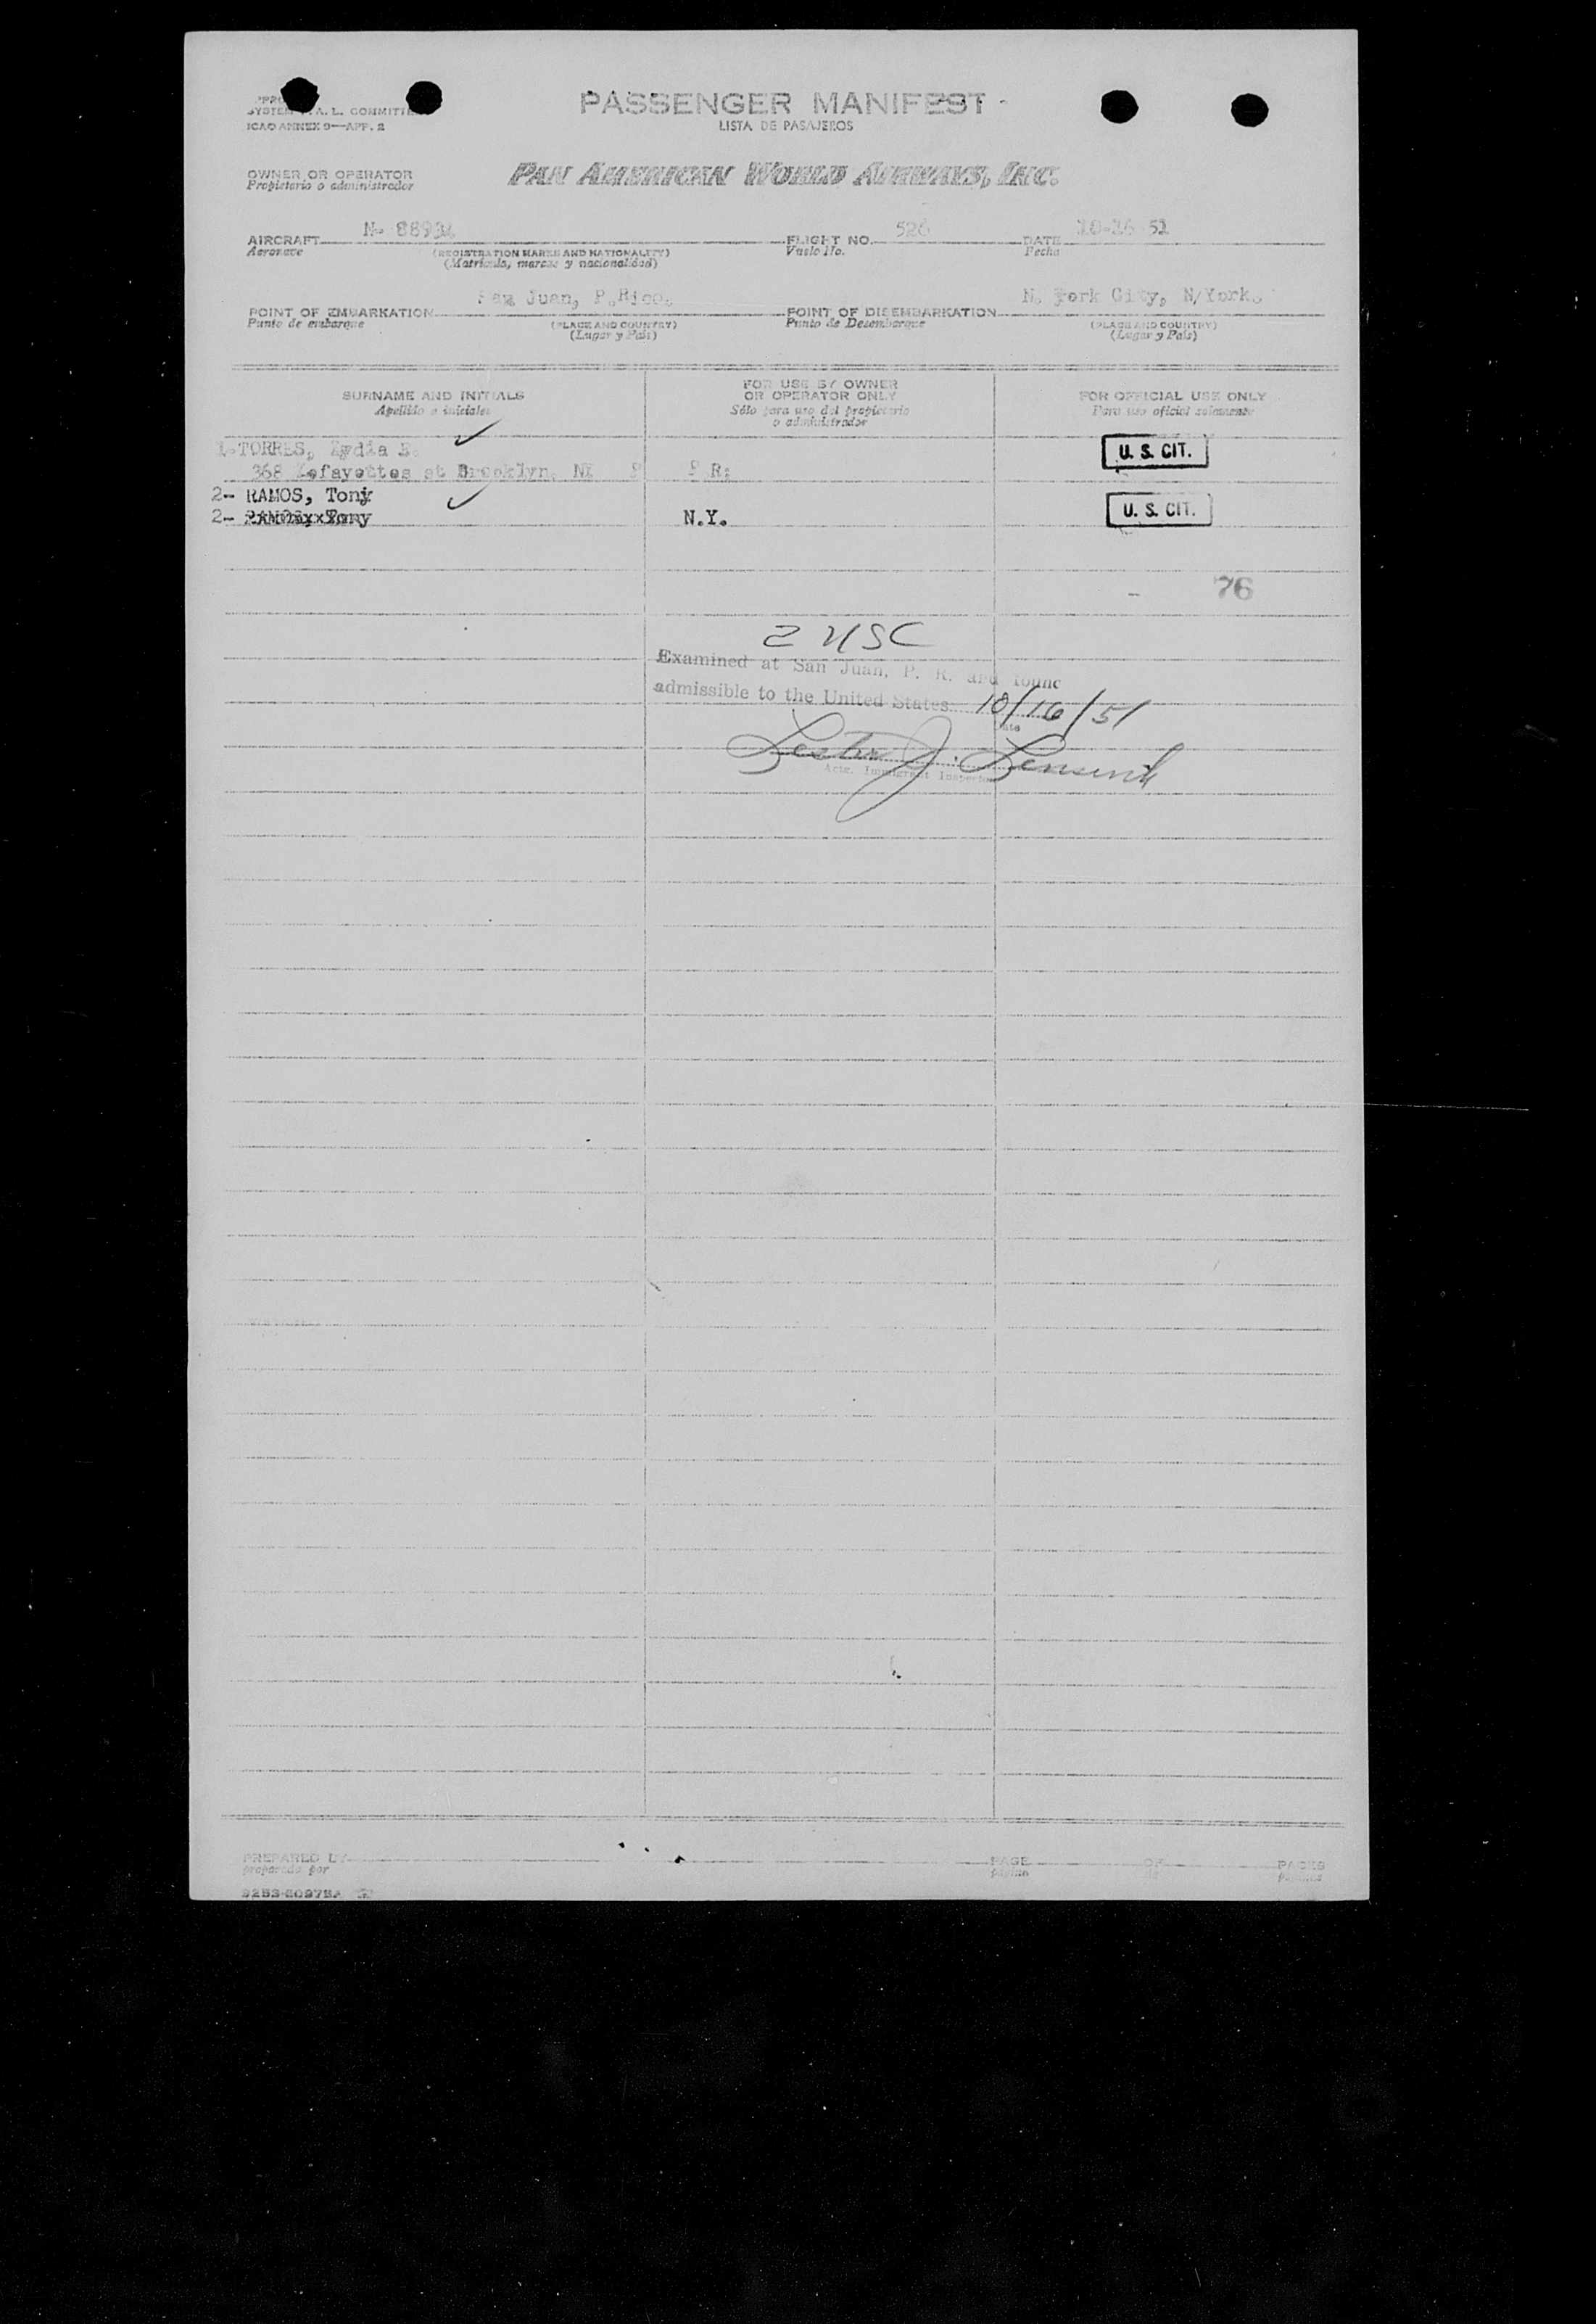 PASSENGER MANIFEST
LISTA DE PASAJEROS
A. L. COMMITTEE
ICAO ANNEX 9—APP. 2
OWNER OR OPERATOR
Propietario o administrador
PAN AMERICAN WORLD AIRWAYS, INC.
AIRCRAFT N- 88934 FLIGHT NO. 526 DATE 10-16-51
Aeronave (REGISTRATION MARKS AND NATIONALITY) Vuelo No. Fecha
(Matrícula, marcas y nacionalidad)
POINT OF EMBARKATION San Juan, P.Rico. POINT OF DISEMBARKATION N. York City, N/York.
Punto de embarque (PLACE AND COUNTRY) Punto de Desembarque (PLACE AND COUNTRY)
(Lugar y País) (Lugar y País)
SURNAME AND INITIALS FOR USE BY OWNER OR OPERATOR ONLY FOR OFFICIAL USE ONLY
Apellido e iniciales Sólo para uso del propietario o administrador Para uso oficial solamente
1-TORRES, Lydia E. U. S. CIT.
368 Lafayettes st Brooklyn, NY P.R.
2- RAMOS, Tony
2- Tony N.Y. U. S. CIT.
76
2 USC
Examined at San Juan, P. R. and found
admissible to the United States 10/16/51
Date
Immigrant Inspector
PREPARED BY PAGE OF PAGES
preparado por página de páginas